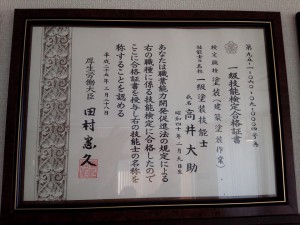 一級技能検定合格証書
検定職種 塗装(建築塗装作業)
技能士の名称 一級塗装技能士
氏名 高井大助
昭和四十年二月九日生
あなたは職業能力開発促進法の規定による
右の職種に係る技能検定に合格したので
ここに合格証書を授与し右の技能士の名称を
称することを認める
平成二十五年三月二十八日
厚生労働大臣
田村憲久